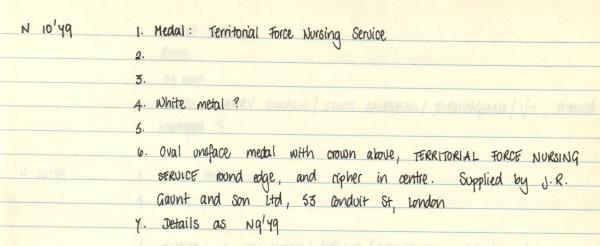 N 10'49 1. Medal: Territorial Force Nursing Service
2.
3.
4. White metal?
5.
6. Oval uniface medal with crown above, TERRITORIAL FORCE NURSING
SERVICE round edge, and cipher in centre. Supplied by J.R.
Gaunt and Son Ltd, 53 Conduit St, London
7. Details as N9'49